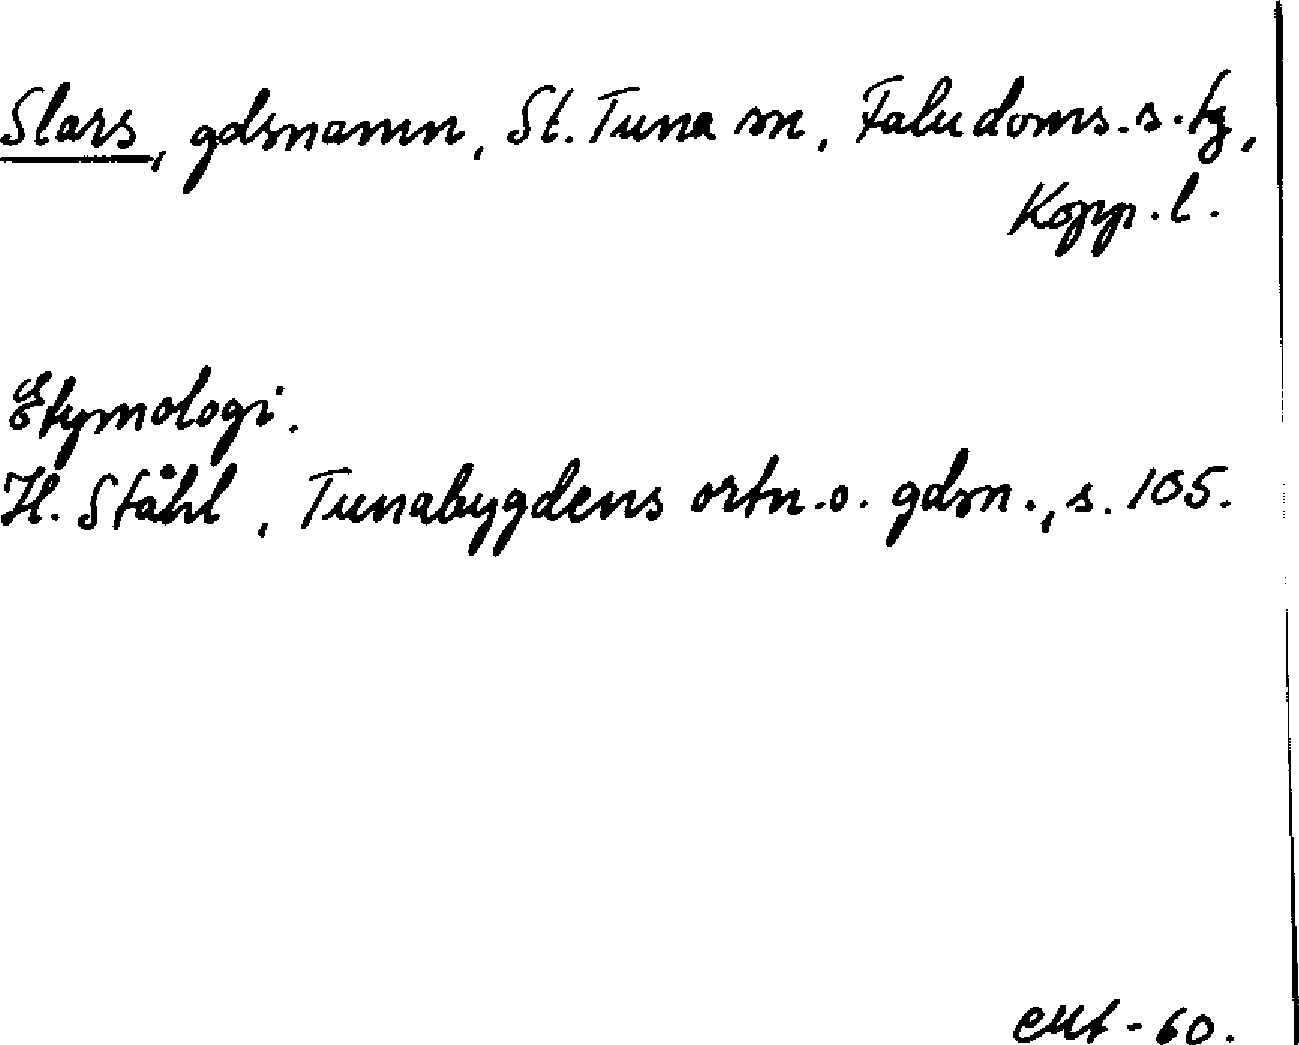 Slars, gdsnamn, St. Tuna sn, Falu doms. s. tg,
Kopp. l.
Etymologi.
H. Ståhl, Tunabygdens ortn. o. gdsn., s. 105.
- 60.